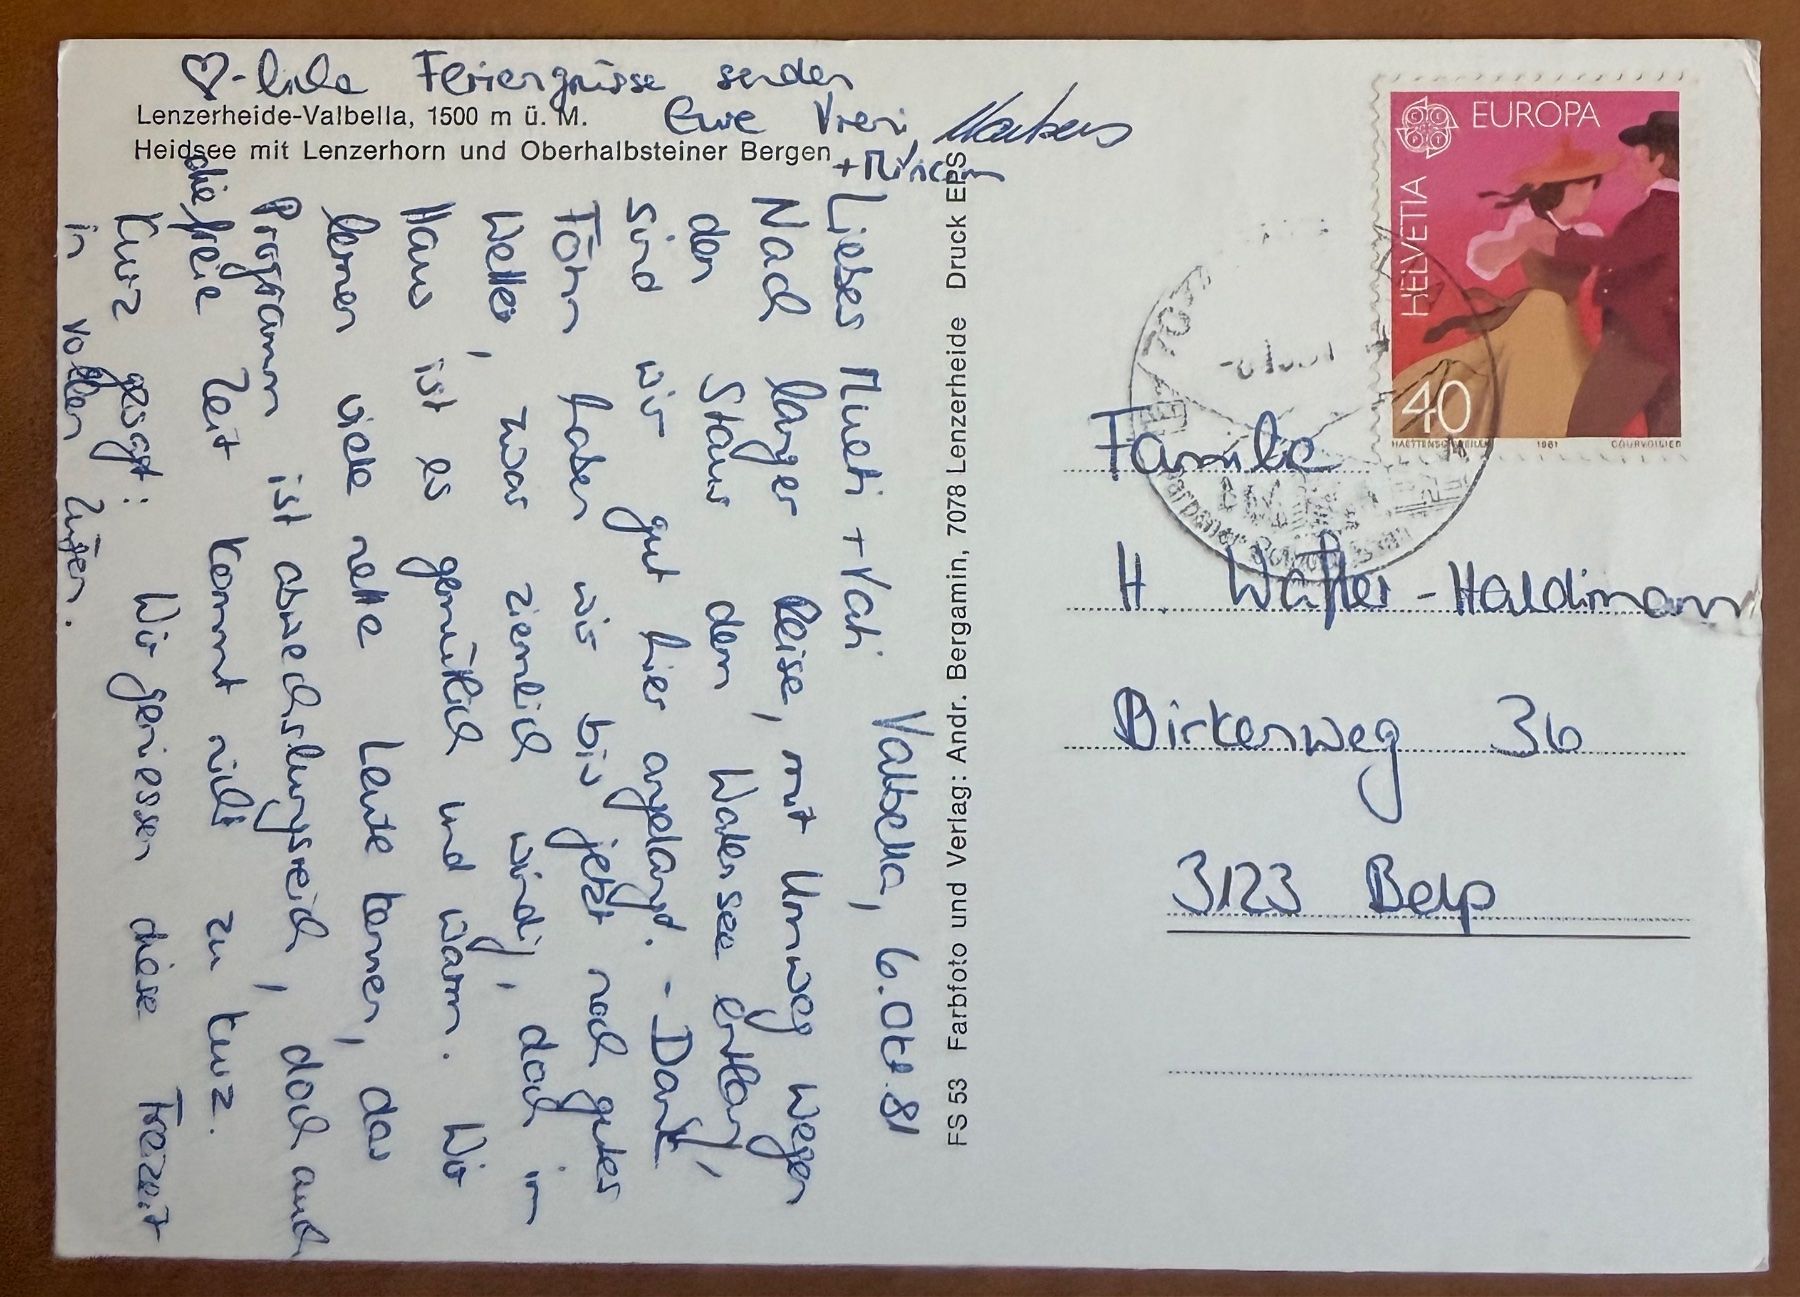 Lenzerheide-Valbella, 1500 m ü. M.
Heidsee mit Lenzerhorn und Oberhalbsteiner Bergen
Valbella, 6. Okt. 81
Liebes Mueti + Vati
Nach langer Reise, mit Umweg wegen
den Staus dem Walensee entlang,
sind wir gut hier angelangt. - Dank
Föhn haben wir bis jetzt noch gutes
Wetter, zwar ziemlich windig, doch im
Haus ist es gemütlich und warm. Wir
lernen viele nette Leute kennen, das
Programm ist abwechslungsreich, doch auch
die freie Zeit kommt nicht zu kurz.
Kurz gesagt: Wir geniessen diese Freizeit
in vollen Zügen.
♡-liche Feriengrüsse senden
Eure Vreni, Markus
+ Miriam
FS 53 Farbfoto und Verlag: Andr. Bergamin, 7078 Lenzerheide Druck EPS
EUROPA
HELVETIA
40
1981 COURVOISIER
Familie
H. Wafler-Haldimann
Birkenweg 36
3123 Belp